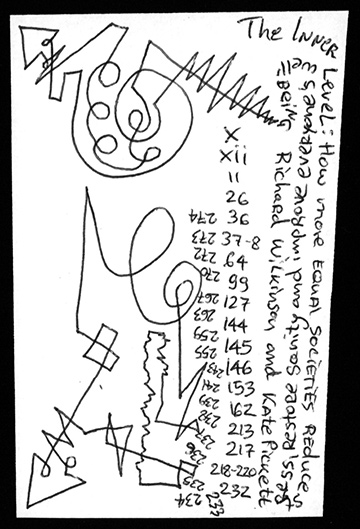 The INNER
Level: How more EQUAL SOCIETIES REDUCE
stress RESTORE Sanity and improve everyone's
WELLBEING Richard Wilkinson and Kate Pickett
X
Xii
11
26
36
37-8
64
99
127
144
145
146
153
162
213
217
218-220
232
233
234
235
236
237
238
239
241
255
259
263
267
270
272
273
274